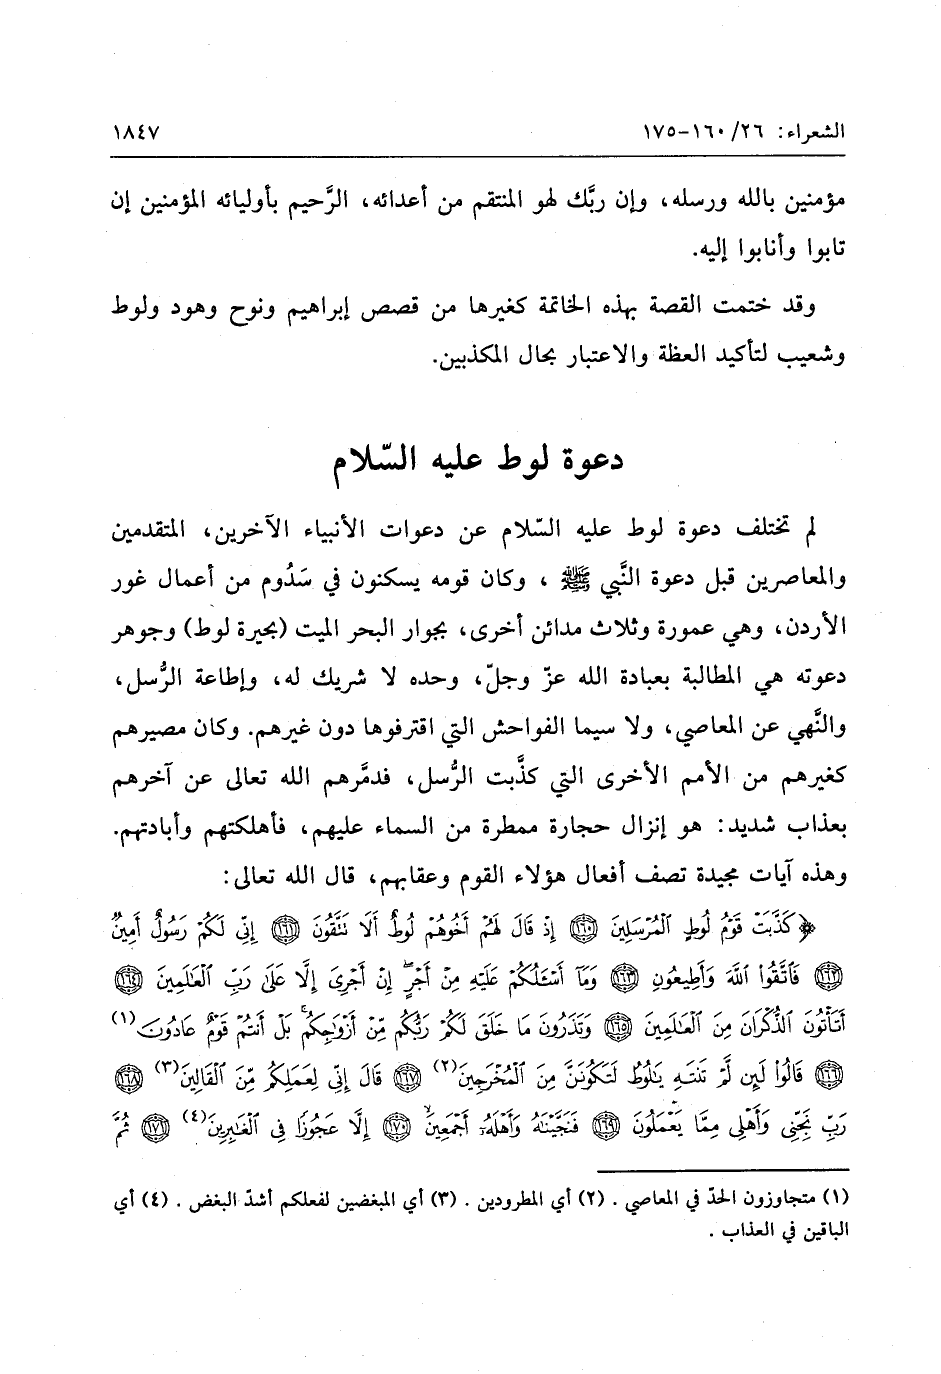 الشعراء: ٢٦/ ١٦٠-١٧٥ ١٨٤٧
مؤمنين بالله ورسله، وإن ربَّك لهو المنتقم من أعدائه، الرَّحيم بأوليائه المؤمنين إن
تابوا وأنابوا إليه.
وقد ختمت القصة بهذه الخاتمة كغيرها من قصص إبراهيم ونوح وهود ولوط
وشعيب لتأكيد العظة والاعتبار بحال المكذبين.
دعوة لوط عليه السّلام
لم تختلف دعوة لوط عليه السّلام عن دعوات الأنبياء الآخرين، المتقدمين
والمعاصرين قبل دعوة النَّبي ﷺ ، وكان قومه يسكنون في سَدُوم من أعمال غور
الأردن، وهي عمورة وثلاث مدائن أخرى، بجوار البحر الميت (بحيرة لوط) وجوهر
دعوته هي المطالبة بعبادة الله عزّ وجلّ، وحده لا شريك له، وإطاعة الرُّسل،
والنَّهي عن المعاصي، ولا سيما الفواحش التي اقترفوها دون غيرهم. وكان مصيرهم
كغيرهم من الأمم الأخرى التي كذَّبت الرُّسل، فدمَّرهم الله تعالى عن آخرهم
بعذاب شديد: هو إنزال حجارة ممطرة من السماء عليهم، فأهلكتهم وأبادتهم.
وهذه آيات مجيدة تصف أفعال هؤلاء القوم وعقابهم، قال الله تعالى:
﴿كَذَّبَتْ قَوْمُ لُوطٍ الْمُرْسَلِينَ ١٦٠ إِذْ قَالَ لَهُمْ أَخُوهُمْ لُوطٌ أَلَا تَتَّقُونَ ١٦١ إِنِّي لَكُمْ رَسُولٌ أَمِينٌ
١٦٢ فَاتَّقُوا اللَّهَ وَأَطِيعُونِ ١٦٣ وَمَا أَسْـَٔلُكُمْ عَلَيْهِ مِنْ أَجْرٍ إِنْ أَجْرِيَ إِلَّا عَلَىٰ رَبِّ الْعَالَمِينَ ١٦٤
أَتَأْتُونَ الذُّكْرَانَ مِنَ الْعَالَمِينَ ١٦٥ وَتَذَرُونَ مَا خَلَقَ لَكُمْ رَبُّكُم مِّنْ أَزْوَاجِكُم بَلْ أَنتُمْ قَوْمٌ عَادُونَ(١)
١٦٦ قَالُوا لَئِن لَّمْ تَنتَهِ يَالُوطُ لَتَكُونَنَّ مِنَ الْمُخْرَجِينَ(٢) ١٦٧ قَالَ إِنِّي لِعَمَلِكُم مِّنَ الْقَالِينَ(٣) ١٦٨
رَبِّ نَجِّنِي وَأَهْلِي مِمَّا يَعْمَلُونَ ١٦٩ فَنَجَّيْنَاهُ وَأَهْلَهُ أَجْمَعِينَ ١٧٠ إِلَّا عَجُوزًا فِي الْغَابِرِينَ(٤) ١٧١ ثُمَّ
(١) متجاوزون الحدّ في المعاصي . (٢) أي المطرودين . (٣) أي المبغضين لفعلكم أشدّ البغض . (٤) أي
الباقين في العذاب .